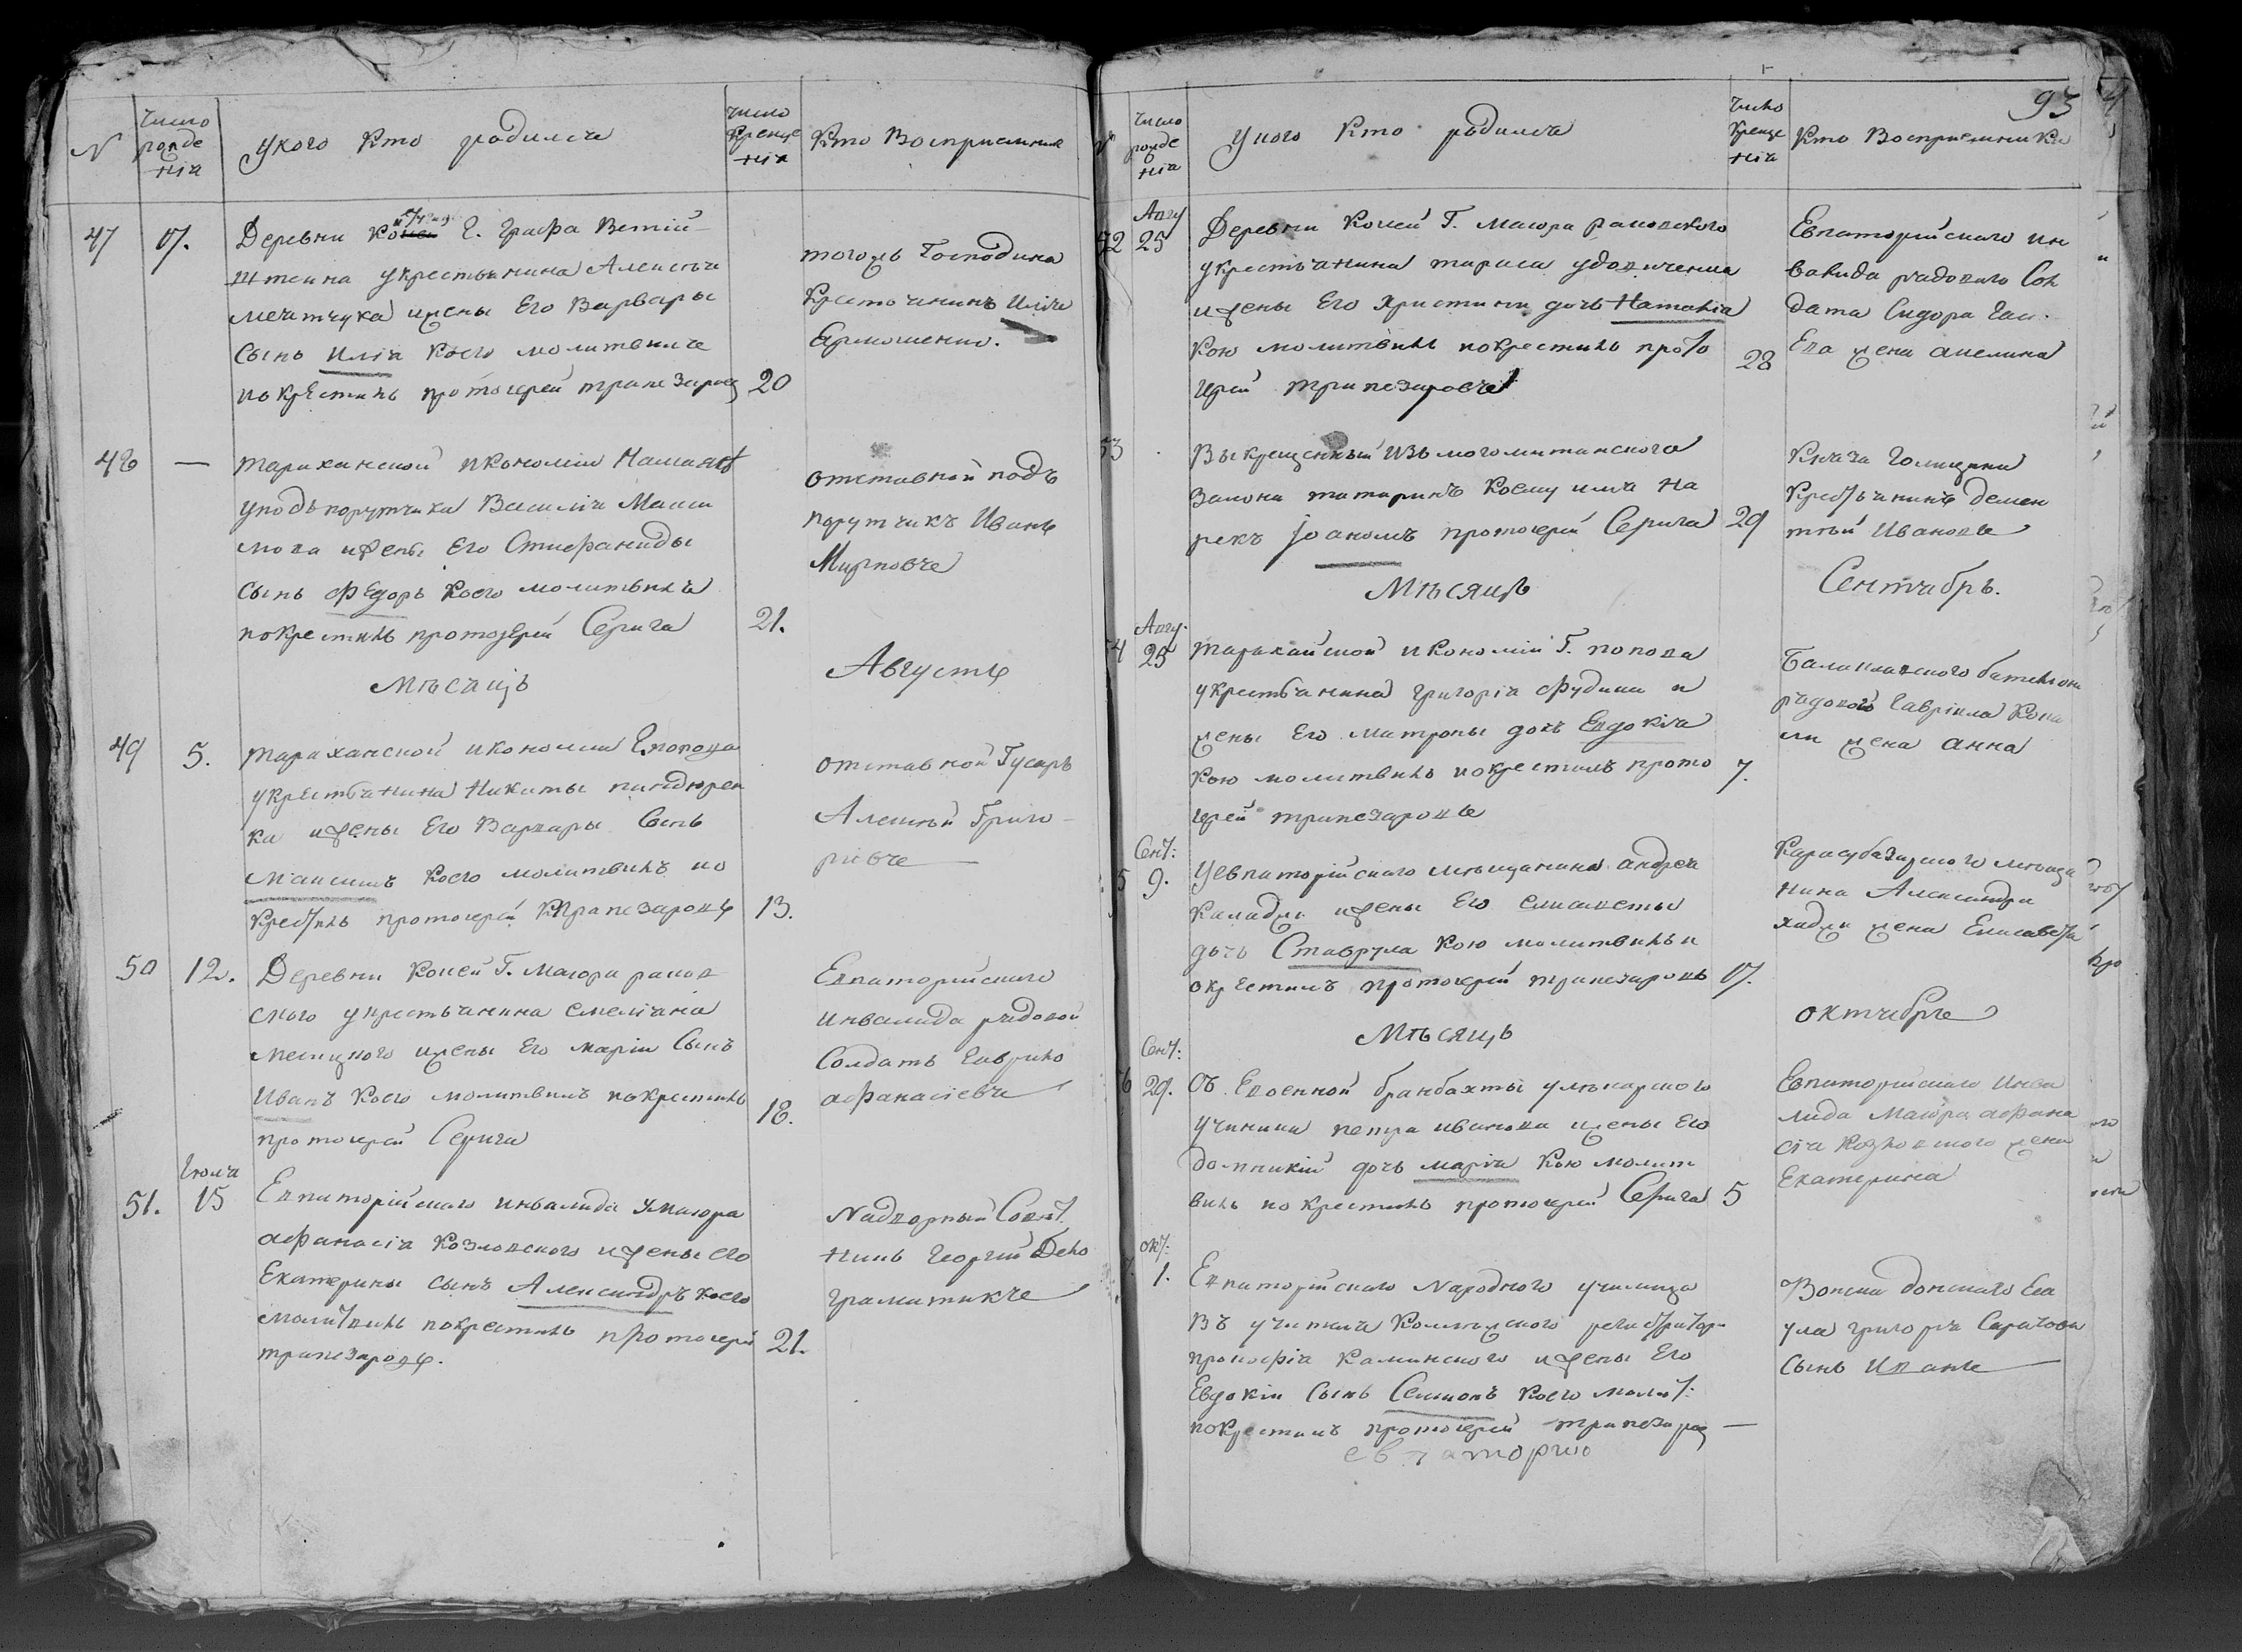 N
число рожде нія
у кого кто родился
число креще нія
кто восприемник
47
17.
Деревни Г. Графа Ветгій-
штеина у крестьянина Алексея
и жены его Варвары
сынъ Илія коего молитвиле
покрестилъ протоіерей трапезаров
20
тогожъ Господина
крестьянинъ Илія
Ермошенко.
48
—
тараханской икономіи
у подпорутчика Василія Макси
мова и жены его Стефаниды
сынъ Федоръ коего молитвилъ
покрестилъ протоіерей Серига
21.
отставной подъ
порутчикъ Иванъ
Мировче
Мѣсяцъ
Августъ
49
5.
тараханской икономіи Г. попова
у крестьянина Никиты
ка и жены его Варвары сынъ
Максимъ коего молитвилъ по
крестилъ протоіерей трапезаровъ
13.
отставной Гусаръ
Алексѣй Григо-
ріевче
50
12.
Деревни Коней Г. Маіора рапов
ского у крестьянина Емеліана
и жены его маріи сынъ
Иванъ коего молитвилъ покрестилъ
протоіерей Серига
18.
Евпаторійскаго
инвалида рядовой
солдатъ Гаврило
афанасіевче
51.
Іюля
15
Евпаторійскаго инвалида у маіора
афанасія Козловского и жены его
Екатерины сынъ Александръ коего
молитвилъ покрестилъ протоіерей
трапезаровъ.
21.
Надворный Совѣт
никъ Георгій Дело
граматикче
93
число рожде нія
у кого кто родился
число креще нія
кто восприемники
52
Авгу
25
Деревни Коней Г. маіора раповского
у крестьянина тараса удовиченка
и жены его христини дочь Наталія
кою молитвилъ покрестилъ прото
іерей трапезаровче
28
Евпаторійскаго ин
валида рядоваго сол
дата Сидора
ева жена акелина
53
Выкрещенный изъ моголитанского
закона татаринъ коему имя на
рекъ Іоаномъ протоіерей Серига
29
Князя Голицина
крестьянинъ демен
тѣй Ивановче
Мѣсяцъ
Сентябрь.
54
Авгу.
25
тараханской икономіи Г. попова
у крестьянина григорія и
жены его матроны дочь Евдокія
кою молитвилъ покрестилъ прото
іерей трапезаровче
7.
Балаклавского баталіона
рядового Гавріила
жена анна
5
Сент:
9.
У евпаторійскаго мѣщанина андрея
и жены его елисаветы
дочь Ставрула кою молитвилъ и
окрестилъ протоіерей трапезаровъ
17.
Карасубазарского мѣща
нина Александра
жена Елисавета
Мѣсяцъ
октябрь
6
Сент:
29.
Съ военной брандвахты у лѣкарского
ученика петра иванова и жены его
домникіи дочь марія кою молит
вилъ покрестилъ протоіерей Серига
5
Евпаторійскаго Инва
лида Маіора афана
сія Козловского жена
Екатерина
окт:
1.
Евпаторійскаго Народного училища
въ учителя коллежского регистратор
прокофія Каминского и жены его
Евдокіи сынъ Симионъ коего молит:
покрестилъ протоіерей трапезаров
—
Войска донскаго Еса
ула григорія
сынъ Иванъ
евпаторию